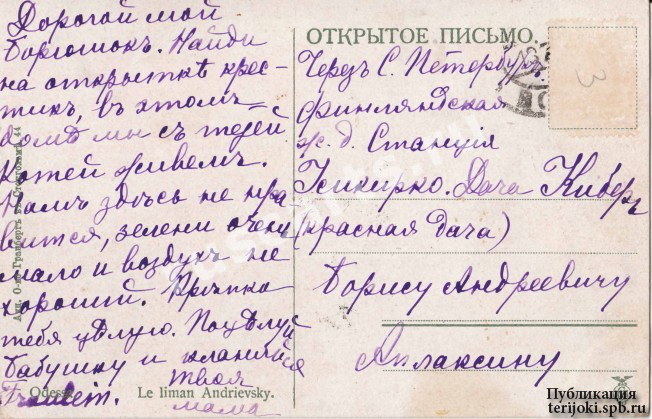 Дорогой мой
Борюшокъ. Найди
на открыткѣ крес-
тикъ, въ этомъ
домѣ мы съ тетей
Катей живемъ.
Намъ здѣсь не нра-
вится, зелени очень
мало и воздухъ не
хорошій. Крѣпко
тебя цѣлую. Поцѣлуй
бабушку и кланяйся
Fräulein.
твоя
мама
Odessa. Le liman Andrievsky.
ОТКРЫТОЕ ПИСЬМО.
Черезъ С. Петербургъ
Финляндская
ж. д. Станція
Усикирко. Дача Киберъ
(красная дача)
Борису Андреевичу
Апраксину
3
Публикация
terijoki.spb.ru